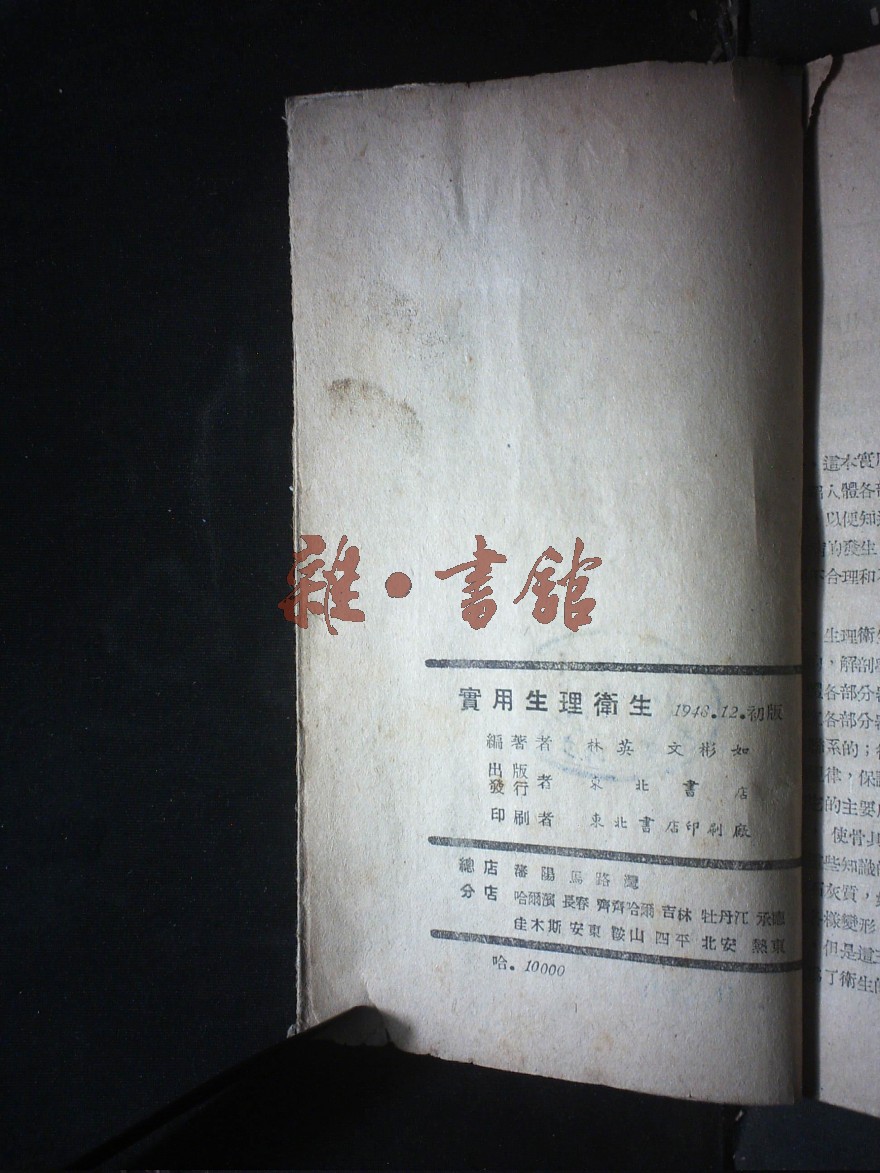 雜·書館
實用生理衛生 1948.12.初版
編著者 林英 文彬如
出版發行者 東北書店
印刷者 東北書店印刷廠
總店 瀋陽馬路灣
分店 哈爾濱 長春 齊齊哈爾 吉林 牡丹江 承德
佳木斯 安東 鞍山 四平 北安 熱東
哈. 10000
這本實
人體各
以便知
的發生
合理和
生理衛生
,解剖
各部分
各部分
係的;
律,保
的主要
使骨
些知識
灰質,
樣變形
但是這
了衛生